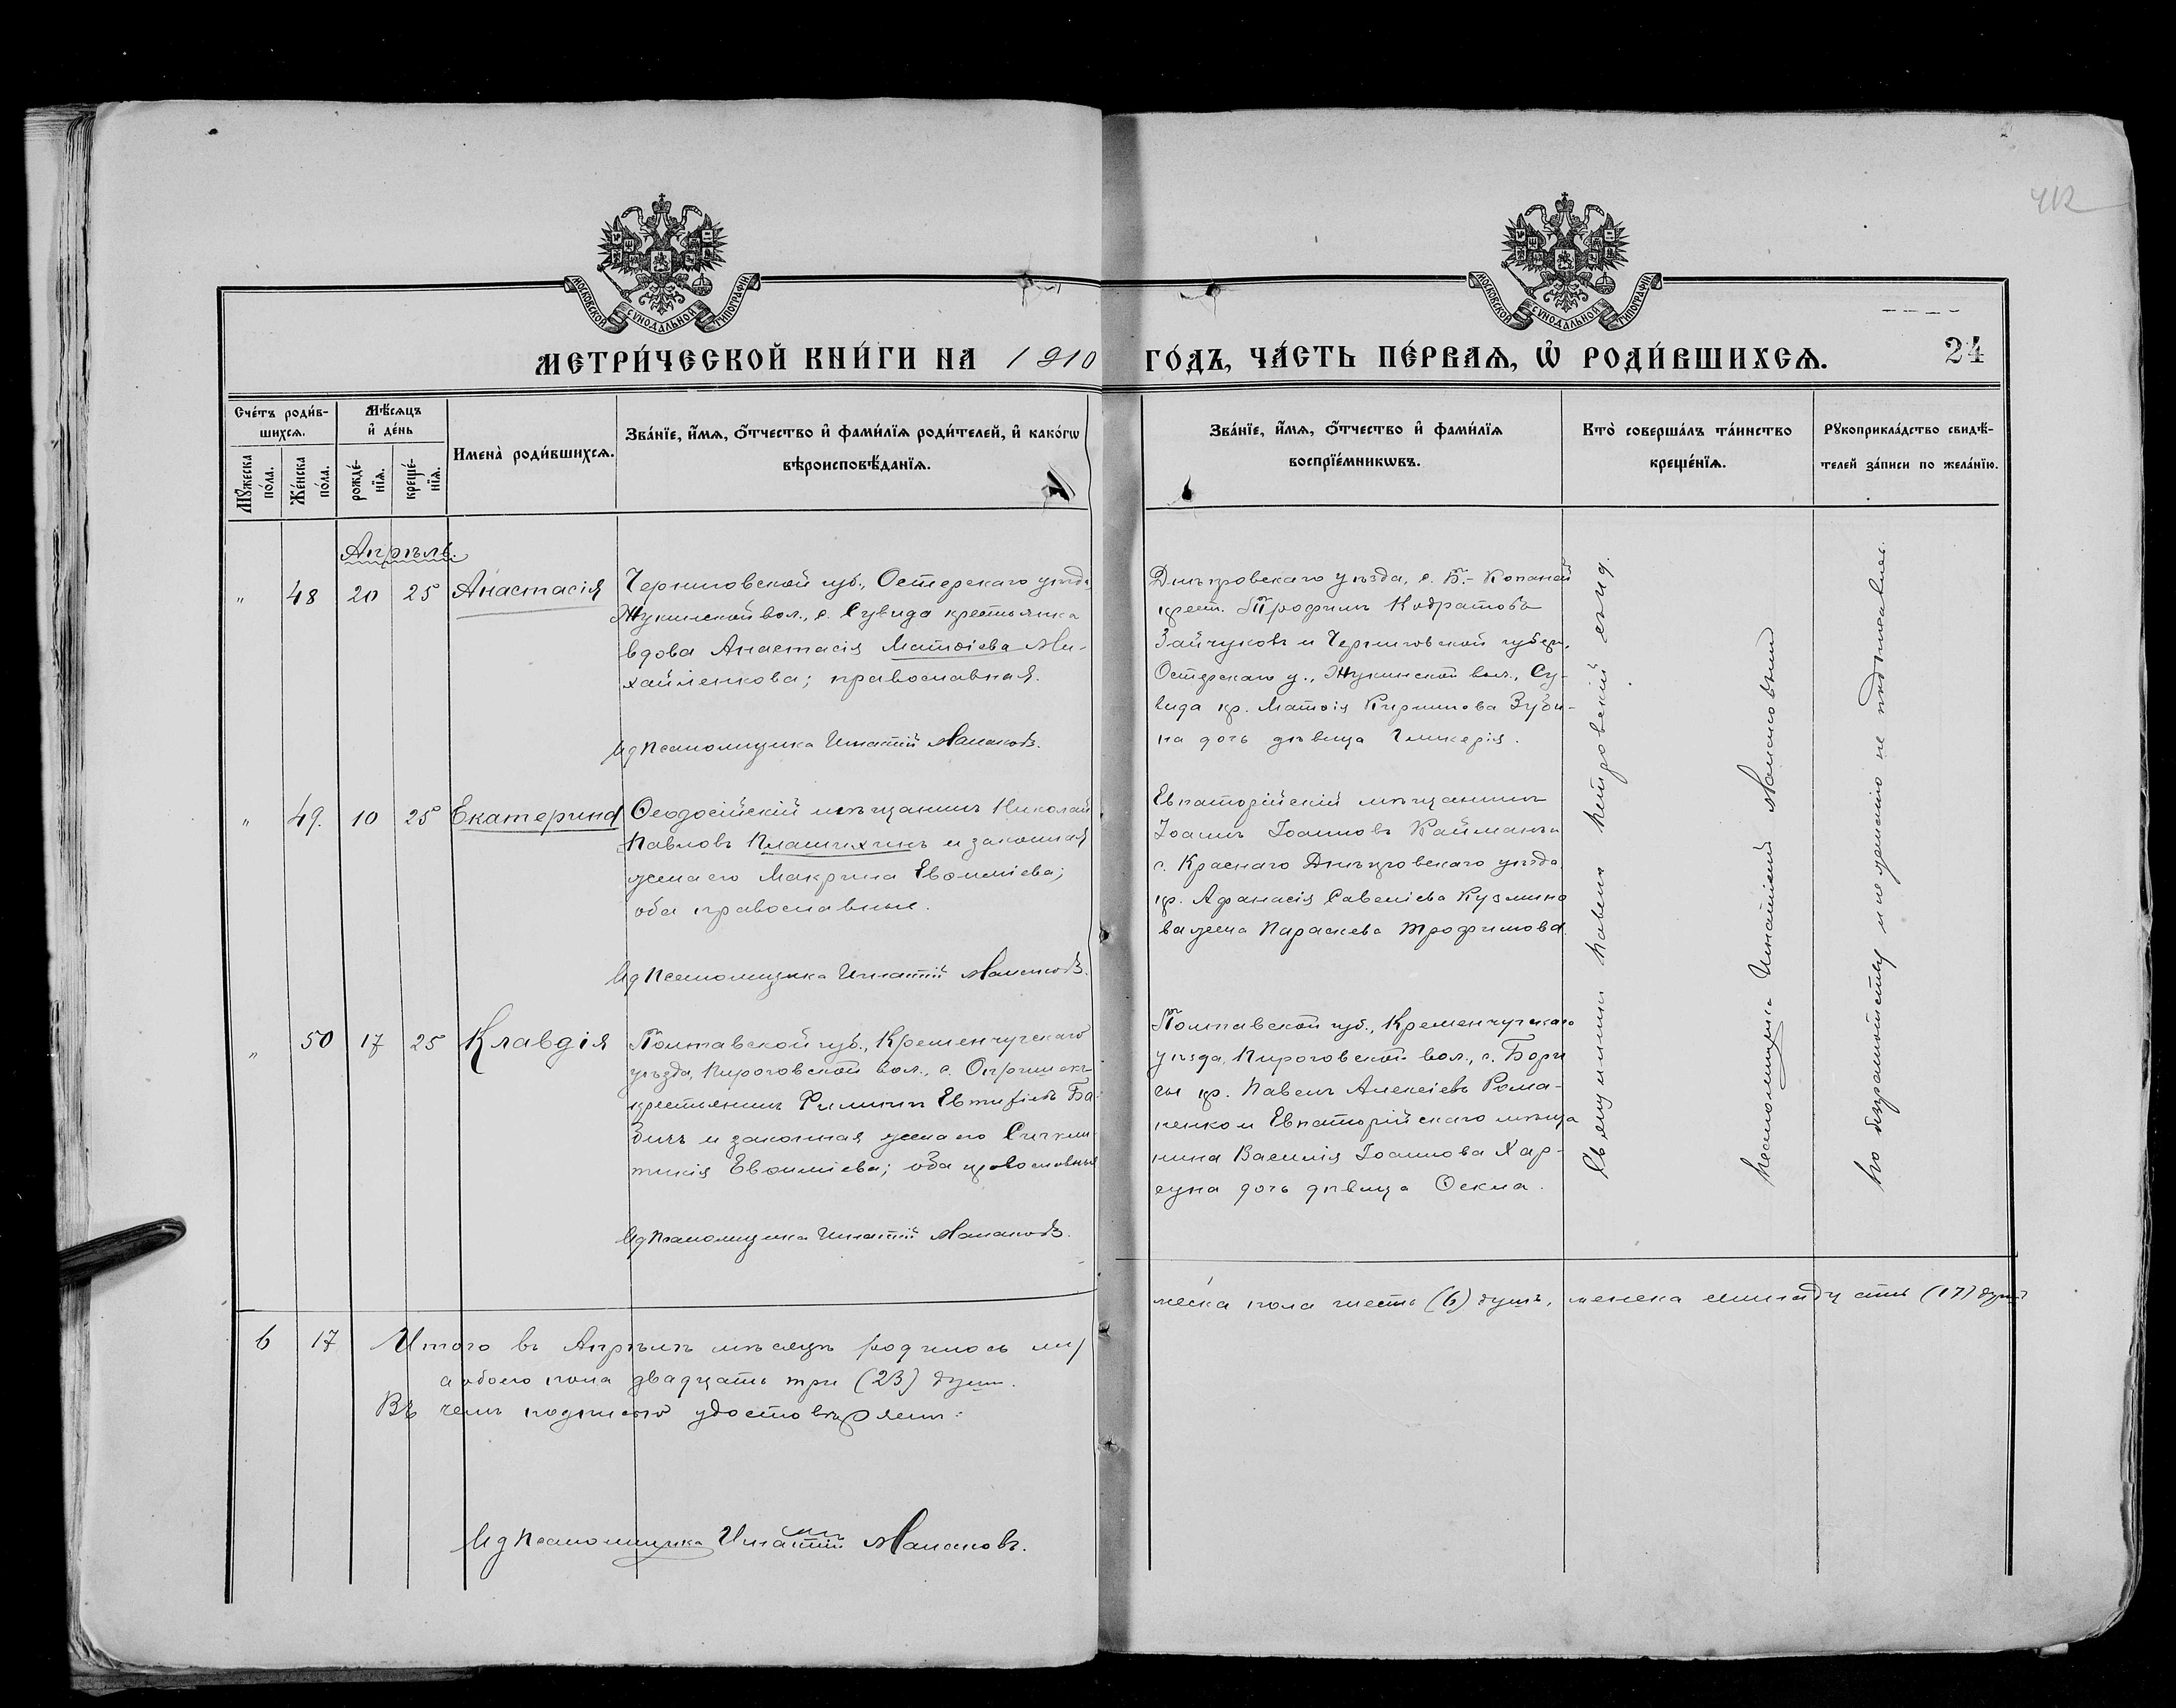 ЧК
МОСКОВСКОЙ СѴНОДАЛЬНОЙ ТИПОГРАФІИ
МОСКОВСКОЙ СѴНОДАЛЬНОЙ ТИПОГРАФІИ
МЕТРИ́ЧЕСКОЙ КНИ́ГИ НА 1910 ГО́ДЪ, ЧА́СТЬ ПЕ́РВАѦ, Ѡ҆ РОДИ́ВШИХСѦ. 24
Сче́тъ роди́в-
шихсѧ.
Мꙋ́жеска
по́ла.
Же́нска
по́ла.
Мѣ́сѧцъ
и҆ де́нь
рожде́-
нїѧ.
креще́-
нїѧ.
Имена̀ роди́вшихсѧ.
Зва́нїе, и҆́мѧ, ѻ҆́тчество и҆ фами́лїѧ роди́телей, и҆ како́гѡ
вѣроисповѣ́данїѧ.
Зва́нїе, и҆́мѧ, ѻ҆́тчество и҆ фами́лїѧ
воспрїе́мникѡвъ.
Кто̀ соверша́лъ та́инство
креще́нїѧ.
Рꙋкоприкла́дство свидѣ́-
телей за́писи по жела́нїю.
Апрѣль.
„ 48 20 25 Анастасія
Черниговской губ., Остерскаго уѣзда
Жукинской вол., с. Сувида крестьянка
вдова Анастасія Матѳіева Ми-
хайленкова; православная.
Ид псаломщика Игнатій Маланковъ.
Днѣпровскаго уѣзда, с. Б.-Копаней
крест. Трофимъ Кодратовъ
Зайчуковъ и Черниговской губерн.
Остерскаго у., Жукинской вол., Су-
вида кр. Матѳія Кириллова Зуби-
на дочь дѣвица Гликерія.
„ 49. 10 25 Екатерина
Ѳеодосійскій мѣщанинъ Николай
Павловъ Плашихинъ и законная
жена его Макрина Евѳиміева;
оба православные.
Ид псаломщика Игнатій Маланковъ.
Евпаторійскій мѣщанинъ
Іоаннъ Іоанновъ Кайманъ и
с. Краснаго Днѣпровскаго уѣзда
кр. Афанасія Савеліева Кузмино
ва жена Параскева Трофимова.
„ 50 17 25 Клавдія
Полтавской губ., Кременчугскаго
уѣзда, Пироговской вол., с. Опришекъ
крестьянинъ Филиппъ Евтифіевъ Ба-
бичъ и законная жена его Синкли-
тикія Евѳиміева; оба православные
Ид псаломщика Игнатій Маланковъ.
Полтавской губ., Кременчугскаго
уѣзда, Пироговской вол., с. Бори
сы кр. Павелъ Алексіевъ Рома-
ненко и Евпаторійскаго мѣща
нина Василія Іоаннова Хар-
суна дочь дѣвица Ѳекла.
Священникъ Павелъ Петровскій съ ид.
псаломщика Игнатіемъ Маланковымъ
По безграмотству и не умѣнію не подписались.
6 17 Итого въ Апрѣлѣ мѣсяцѣ родилось му
жеска пола шесть (6) душъ, женска семнадцать (17) душъ
а обоего пола двадцать три (23) душ.
Въ чемъ подписью удостовѣряемъ:
Ид псаломщика Игнатій Маланковъ.